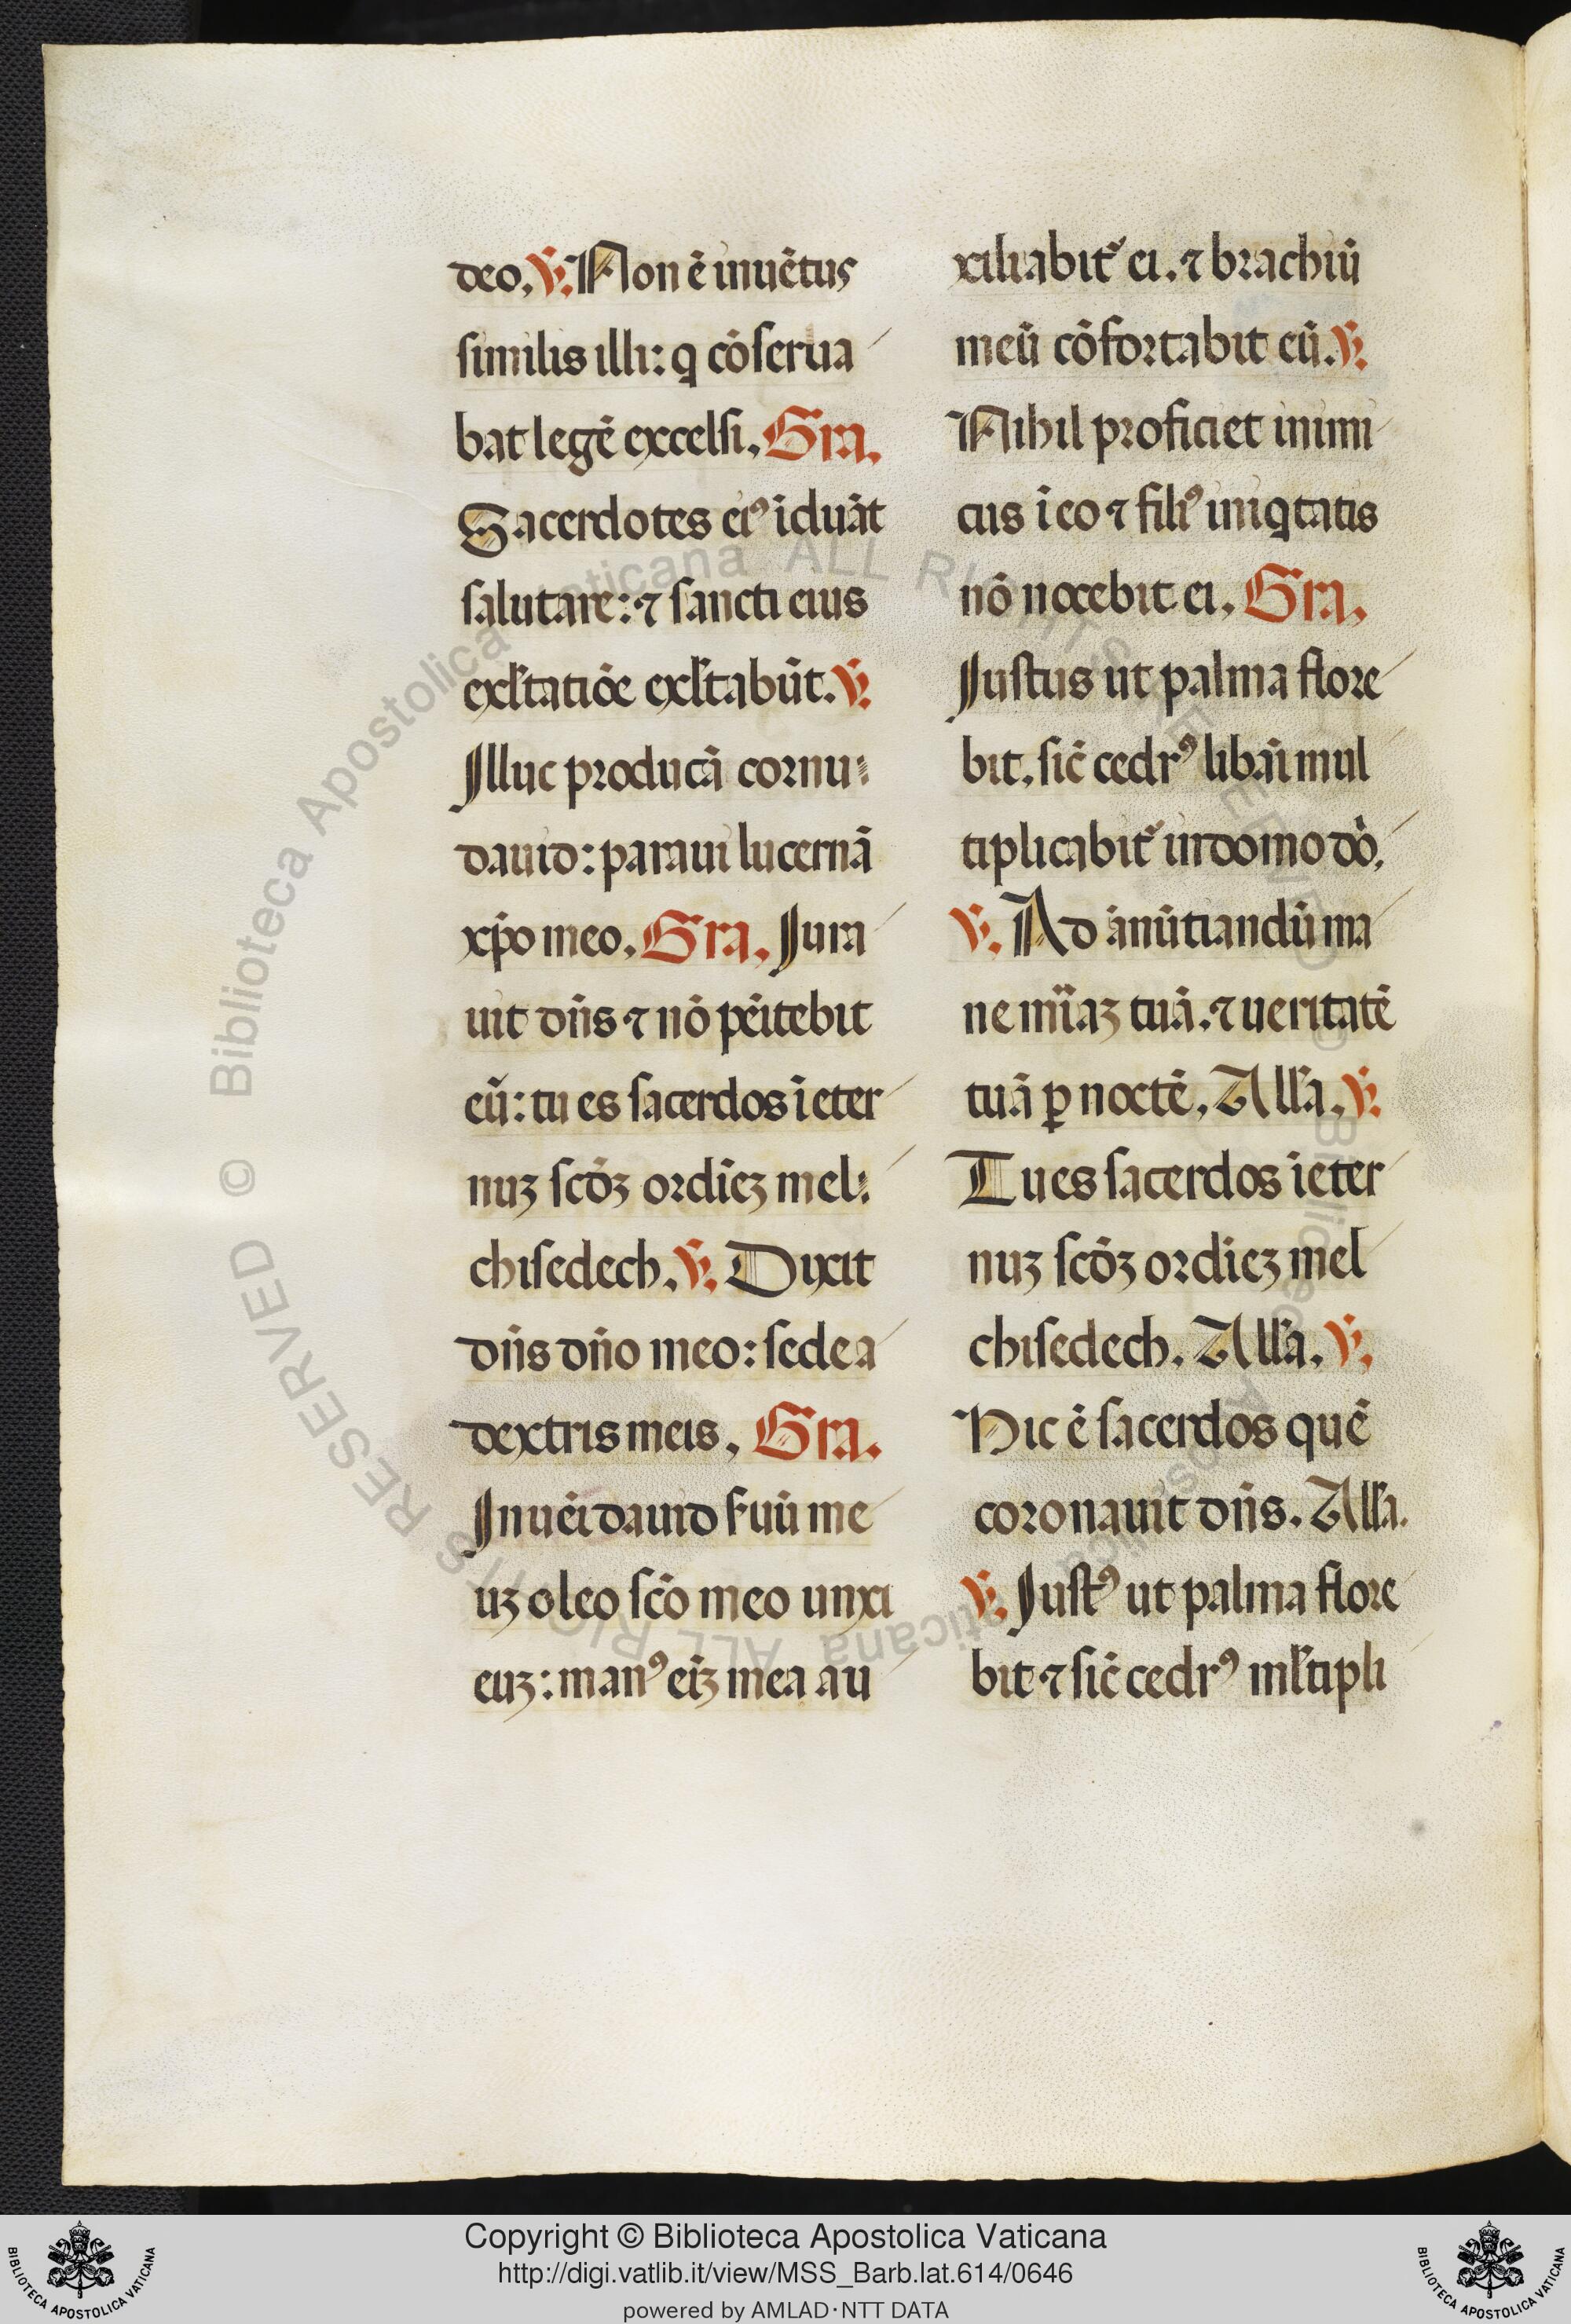 deo. ℣. Non ē inuētus
similis illi: q cōserua
bat legē excelsi. Gra.
Sacerdotes eiꝰ īduāt
salutare: ⁊ sancti eius
exl̃tatiōe exl̃tabūt. ℣.
Illuc producā cornu
dauid: paraui lucernā
xp̄o meo. Gra. Iura
uit dn̄s ⁊ nō pēitebit
eū: tu es sacerdos ī eter
nuꝫ scd̄ꝫ ordīeꝫ mel
chisedech. ℣. Dixit
dn̄s dn̄o meo: sede a
dextris meis. Gra.
Inuēi dauid s̃uū me
uꝫ oleo sc̄o meo unxi
euꝫ: manꝰ ei̓ꝫ mea au
xiliabit̃ ei. ⁊ brachiū
meū cōfortabit eū. ℣.
Nihil proficiet inimi
cus ī eo ⁊ filiꝰ iniqtatis
nō nocebit ei. Gra.
Iustus ut palma flore
bit. sic̄ cedrꝰ libāi mul
tiplicabit̃ in domo dō.
℣. Ad ānūtiandū ma
ne mīaꝫ tuā. ⁊ ueritatē
tuā ꝑ noctē. All̃a. ℣.
Tu es sacerdos ī eter
nuꝫ scd̄ꝫ ordīeꝫ mel
chisedech. All̃a. ℣.
Hic ē sacerdos quē
coronauit dn̄s. All̃a.
℣. Iustꝰ ut palma flore
bit ⁊ sic̄ cedrꝰ ml̃tipli
© Biblioteca Apostolica Vaticana ALL RIGHTS RESERVED © Biblioteca Apostolica Vaticana ALL RIGHTS RESERVED
Copyright © Biblioteca Apostolica Vaticana
http://digi.vatlib.it/view/MSS_Barb.lat.614/0646
powered by AMLAD·NTT DATA
BIBLIOTECA APOSTOLICA VATICANA
BIBLIOTECA APOSTOLICA VATICANA